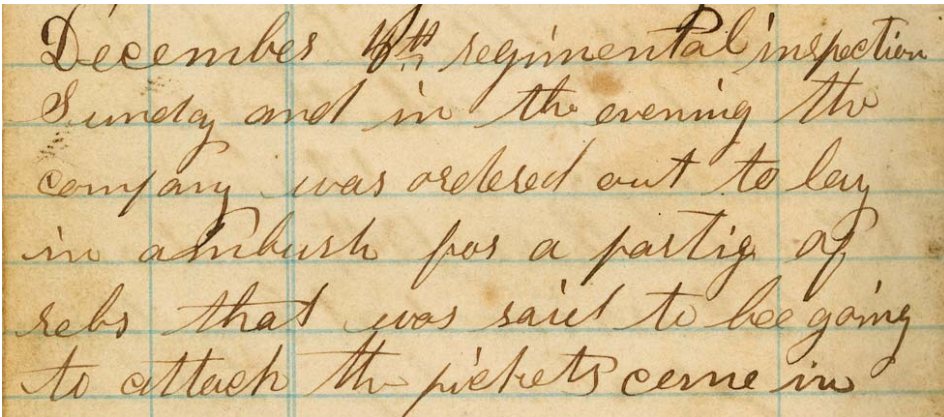 December th regimental inspection
Sunday and in the evening the
company was ordered out to lay
in ambush for a partig of
rebs that was said to bee going
to attack the pickets came in